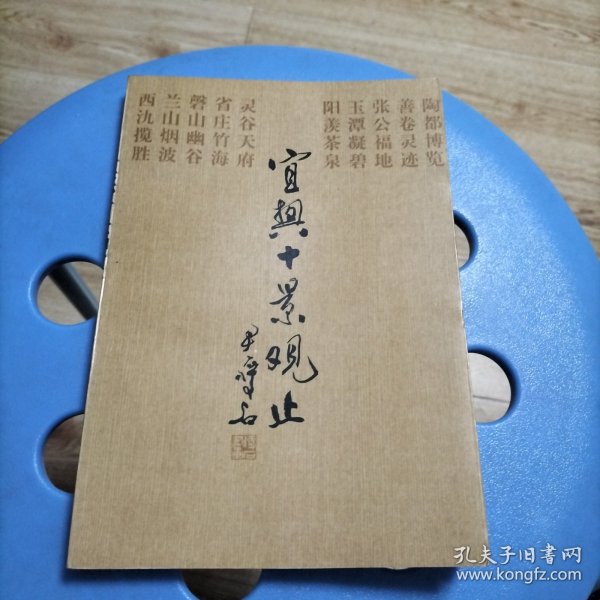 陶都博览
善卷灵迹
张公福地
玉潭凝碧
阳羡茶泉
灵谷天府
省庄竹海
磐山幽谷
兰山烟波
西氿揽胜
宜兴十景观止
尹瘦石
孔夫子旧书网
www.kongfz.com